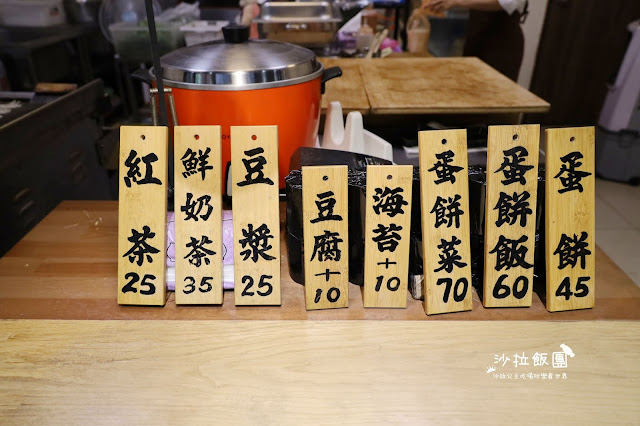 紅茶 25
鮮奶茶 35
豆漿 25
豆腐 +10
海苔 +10
蛋餅菜 70
蛋餅飯 60
蛋餅 45
沙拉飯團